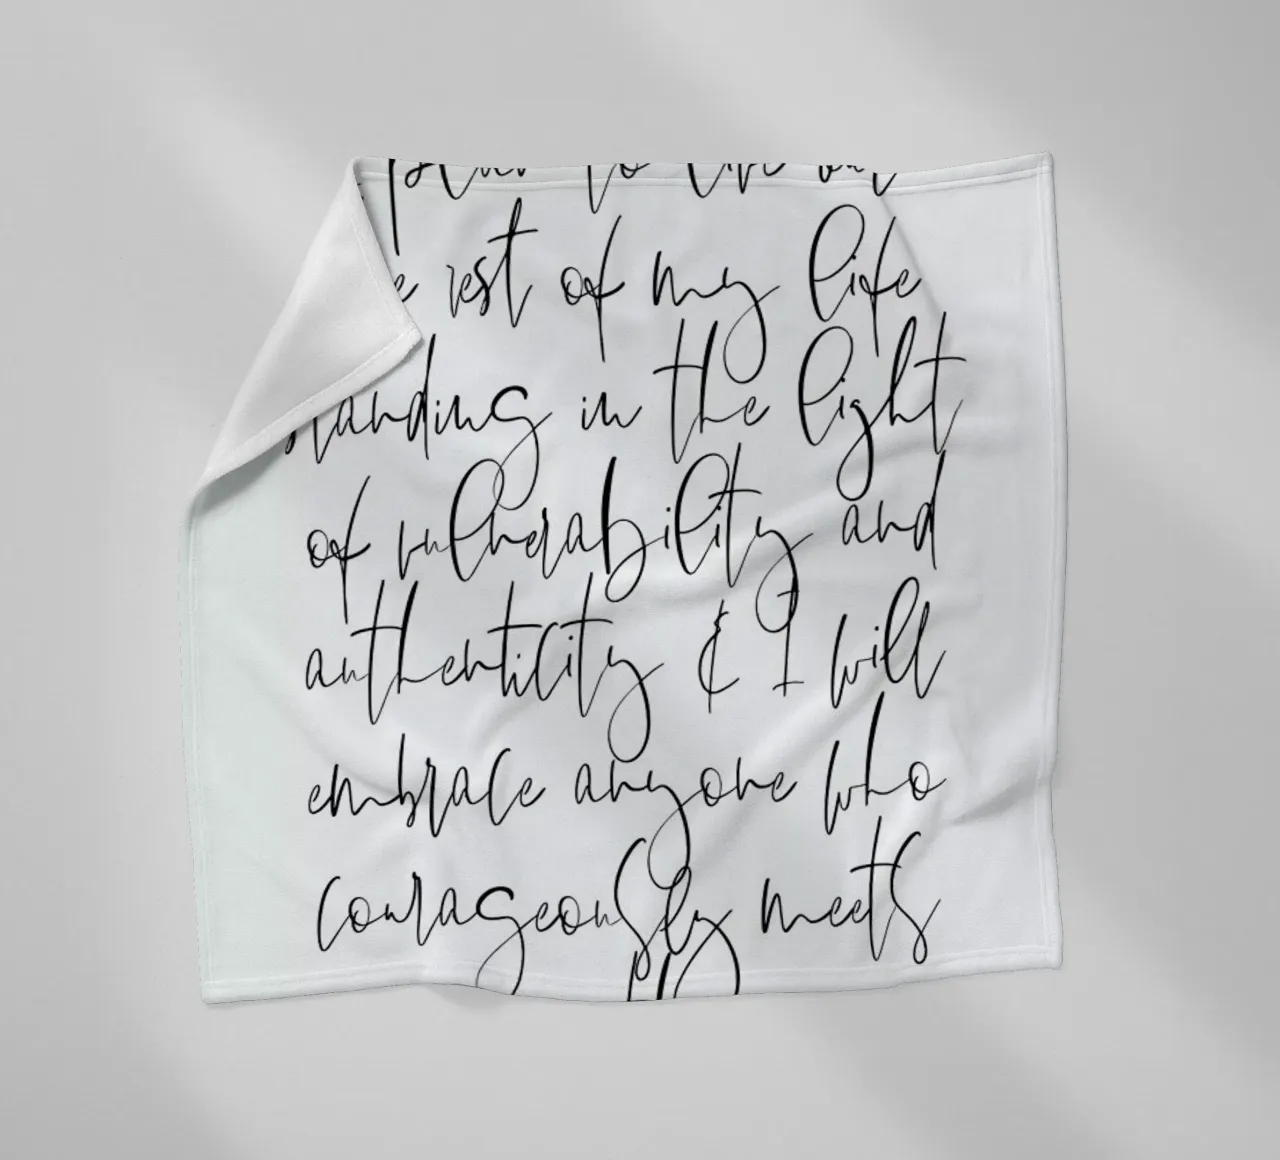 to live out
rest of my life
standing in the light
of vulnerability and
authenticity & I will
embrace anyone who
courageously meets